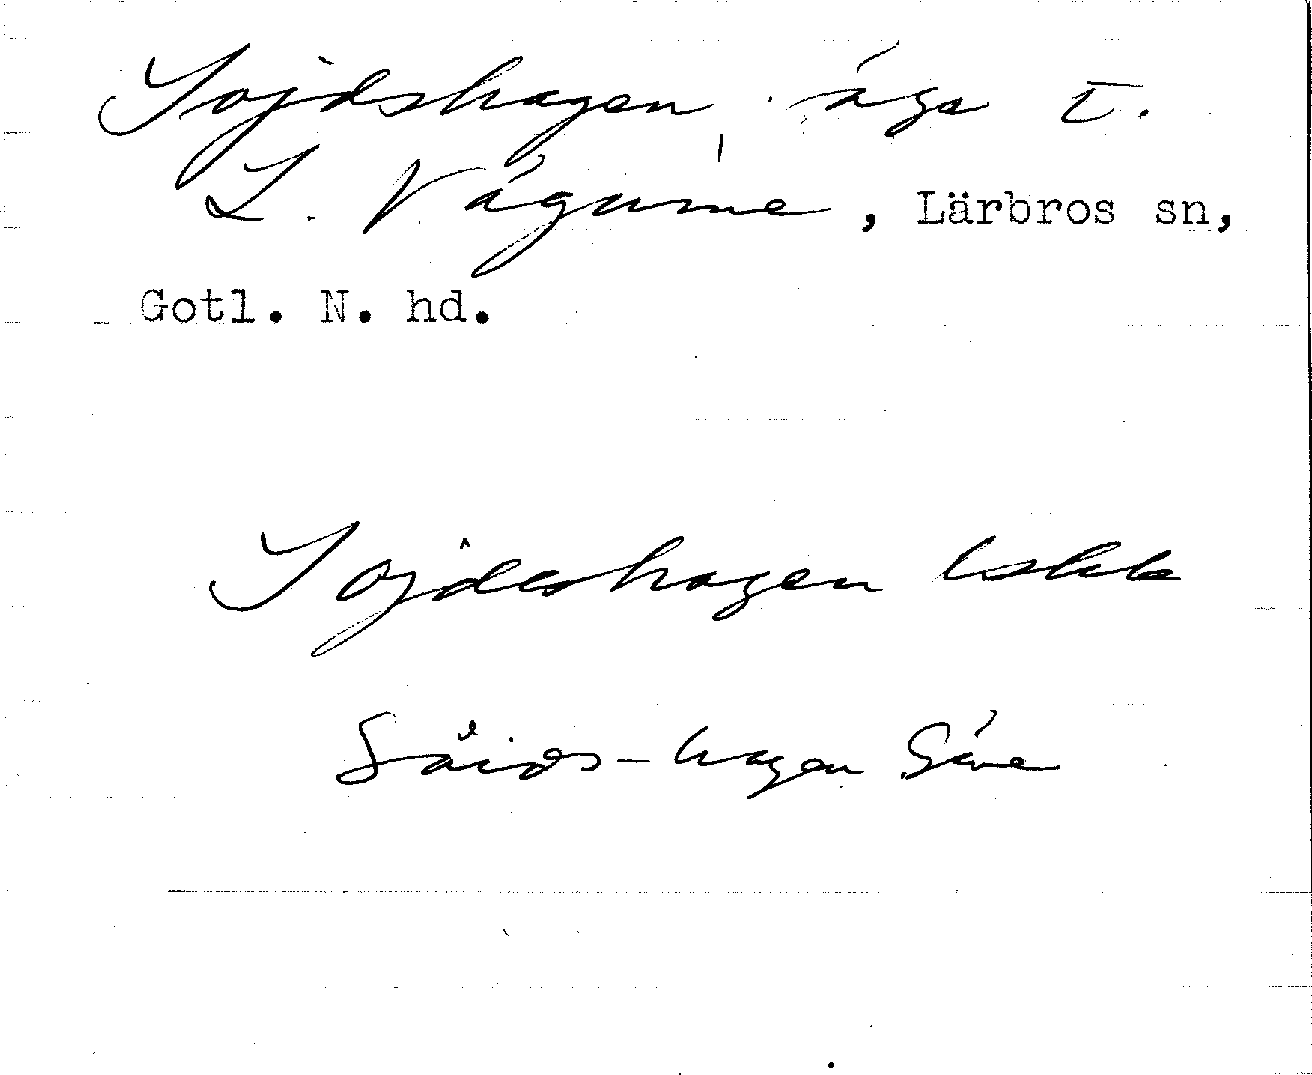 Sojdshagen, äga t.
L. Vägume, Lärbros sn,
Gotl. N. hd.
Sojdeshagen
Såids-hagen Säve